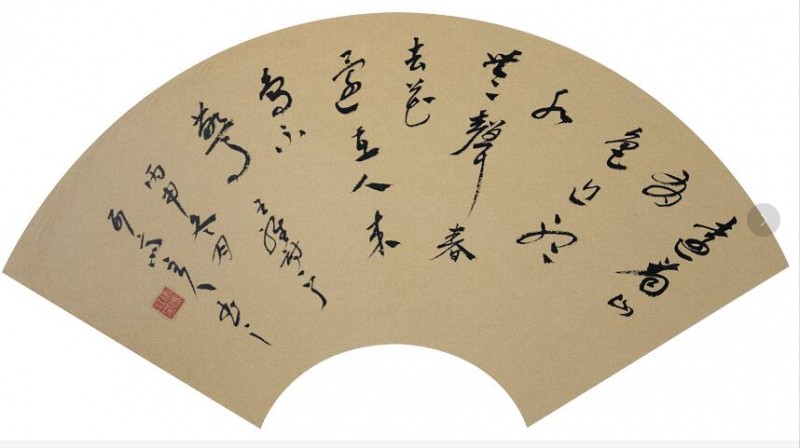 遠看山
有
色近听
水
無聲春
去花
還在人来
鳥不
驚 王維詩一首
丙申冬月
書